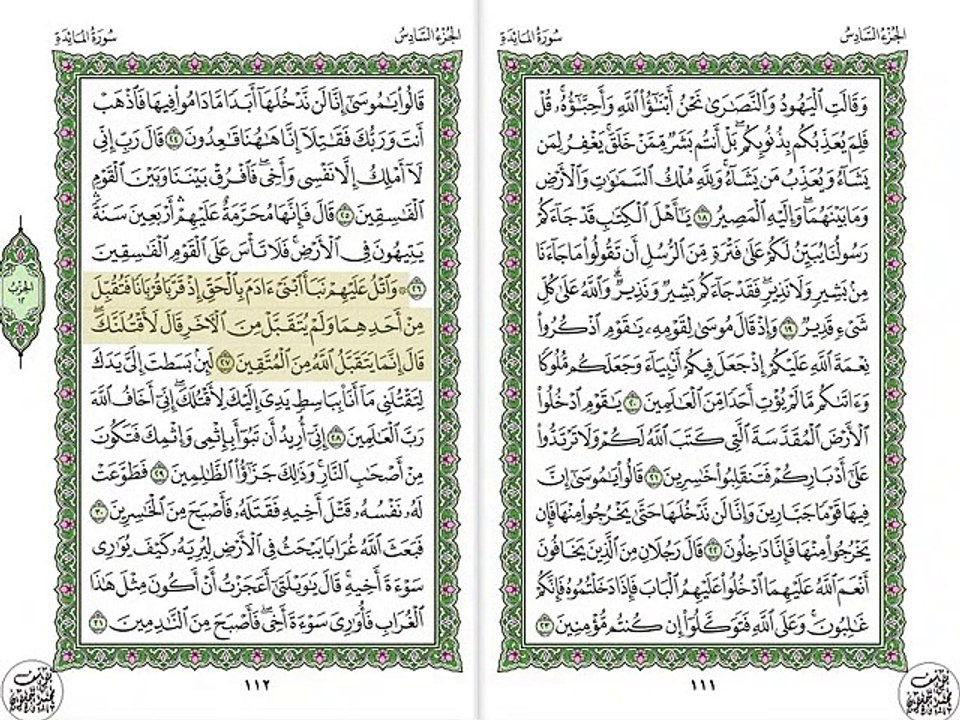 الجزء السادس
سورة المائدة
وَقَالَتِ الْيَهُودُ وَالنَّصَارَىٰ نَحْنُ أَبْنَاؤُا اللَّهِ وَأَحِبَّاؤُهُ ۚ قُلْ
فَلِمَ يُعَذِّبُكُم بِذُنُوبِكُم ۖ بَلْ أَنتُم بَشَرٌ مِّمَّنْ خَلَقَ ۚ يَغْفِرُ لِمَن
يَشَاءُ وَيُعَذِّبُ مَن يَشَاءُ ۚ وَلِلَّهِ مُلْكُ السَّمَاوَاتِ وَالْأَرْضِ
وَمَا بَيْنَهُمَا ۖ وَإِلَيْهِ الْمَصِيرُ ١٨ يَا أَهْلَ الْكِتَابِ قَدْ جَاءَكُمْ
رَسُولُنَا يُبَيِّنُ لَكُمْ عَلَىٰ فَتْرَةٍ مِّنَ الرُّسُلِ أَن تَقُولُوا مَا جَاءَنَا
مِن بَشِيرٍ وَلَا نَذِيرٍ ۖ فَقَدْ جَاءَكُم بَشِيرٌ وَنَذِيرٌ ۗ وَاللَّهُ عَلَىٰ كُلِّ
شَيْءٍ قَدِيرٌ ١٩ وَإِذْ قَالَ مُوسَىٰ لِقَوْمِهِ يَا قَوْمِ اذْكُرُوا
نِعْمَةَ اللَّهِ عَلَيْكُمْ إِذْ جَعَلَ فِيكُمْ أَنبِيَاءَ وَجَعَلَكُم مُّلُوكًا
وَآتَاكُم مَّا لَمْ يُؤْتِ أَحَدًا مِّنَ الْعَالَمِينَ ٢٠ يَا قَوْمِ ادْخُلُوا
الْأَرْضَ الْمُقَدَّسَةَ الَّتِي كَتَبَ اللَّهُ لَكُمْ وَلَا تَرْتَدُّوا
عَلَىٰ أَدْبَارِكُمْ فَتَنقَلِبُوا خَاسِرِينَ ٢١ قَالُوا يَا مُوسَىٰ إِنَّ
فِيهَا قَوْمًا جَبَّارِينَ وَإِنَّا لَن نَّدْخُلَهَا حَتَّىٰ يَخْرُجُوا مِنْهَا فَإِن
يَخْرُجُوا مِنْهَا فَإِنَّا دَاخِلُونَ ٢٢ قَالَ رَجُلَانِ مِنَ الَّذِينَ يَخَافُونَ
أَنْعَمَ اللَّهُ عَلَيْهِمَا ادْخُلُوا عَلَيْهِمُ الْبَابَ فَإِذَا دَخَلْتُمُوهُ فَإِنَّكُمْ
غَالِبُونَ ۚ وَعَلَى اللَّهِ فَتَوَكَّلُوا إِن كُنتُم مُّؤْمِنِينَ ٢٣
١١١
الجزء السادس
سورة المائدة
قَالُوا يَا مُوسَىٰ إِنَّا لَن نَّدْخُلَهَا أَبَدًا مَّا دَامُوا فِيهَا ۖ فَاذْهَبْ
أَنتَ وَرَبُّكَ فَقَاتِلَا إِنَّا هَاهُنَا قَاعِدُونَ ٢٤ قَالَ رَبِّ إِنِّي
لَا أَمْلِكُ إِلَّا نَفْسِي وَأَخِي ۖ فَافْرُقْ بَيْنَنَا وَبَيْنَ الْقَوْمِ
الْفَاسِقِينَ ٢٥ قَالَ فَإِنَّهَا مُحَرَّمَةٌ عَلَيْهِمْ ۛ أَرْبَعِينَ سَنَةً ۛ
يَتِيهُونَ فِي الْأَرْضِ ۚ فَلَا تَأْسَ عَلَى الْقَوْمِ الْفَاسِقِينَ
٢٦ ۞ وَاتْلُ عَلَيْهِمْ نَبَأَ ابْنَيْ آدَمَ بِالْحَقِّ إِذْ قَرَّبَا قُرْبَانًا فَتُقُبِّلَ
مِنْ أَحَدِهِمَا وَلَمْ يُتَقَبَّلْ مِنَ الْآخَرِ قَالَ لَأَقْتُلَنَّكَ ۖ
قَالَ إِنَّمَا يَتَقَبَّلُ اللَّهُ مِنَ الْمُتَّقِينَ ٢٧ لَئِن بَسَطتَ إِلَيَّ يَدَكَ
لِتَقْتُلَنِي مَا أَنَا بِبَاسِطٍ يَدِيَ إِلَيْكَ لِأَقْتُلَكَ ۖ إِنِّي أَخَافُ اللَّهَ
رَبَّ الْعَالَمِينَ ٢٨ إِنِّي أُرِيدُ أَن تَبُوءَ بِإِثْمِي وَإِثْمِكَ فَتَكُونَ
مِنْ أَصْحَابِ النَّارِ ۚ وَذَٰلِكَ جَزَاؤُا الظَّالِمِينَ ٢٩ فَطَوَّعَتْ
لَهُ نَفْسُهُ قَتْلَ أَخِيهِ فَقَتَلَهُ فَأَصْبَحَ مِنَ الْخَاسِرِينَ ٣٠
فَبَعَثَ اللَّهُ غُرَابًا يَبْحَثُ فِي الْأَرْضِ لِيُرِيَهُ كَيْفَ يُوَارِي
سَوْءَةَ أَخِيهِ ۚ قَالَ يَا وَيْلَتَىٰ أَعَجَزْتُ أَنْ أَكُونَ مِثْلَ هَٰذَا
الْغُرَابِ فَأُوَارِيَ سَوْءَةَ أَخِي ۖ فَأَصْبَحَ مِنَ النَّادِمِينَ ٣١
١١٢
الحزب
١٢